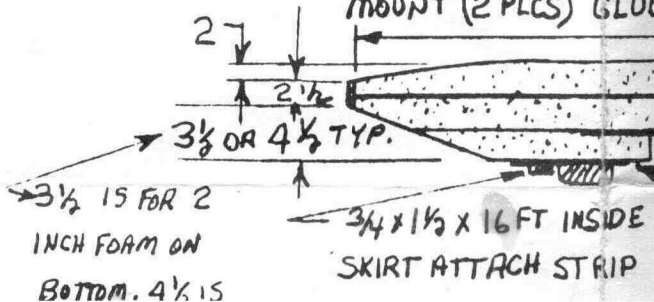 MOUNT (2 PLCS) GLUE
2
2 1/2
3½ OR 4½ TYP.
3½ IS FOR 2
INCH FOAM ON
BOTTOM. 4½ IS
3/4 x 1 1/2 x 16 FT INSIDE
SKIRT ATTACH STRIP